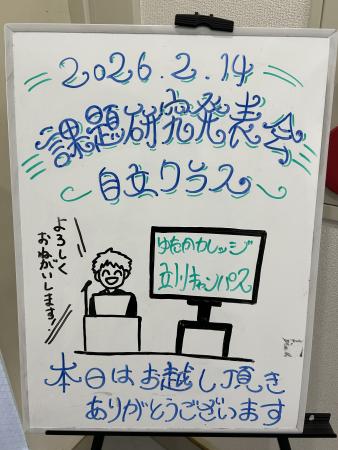 2026.2.14
課題研究発表会
自立クラス
よろしく
おねがいします!
ゆたかカレッジ
立川キャンパス
本日はお越し頂き
ありがとうございます